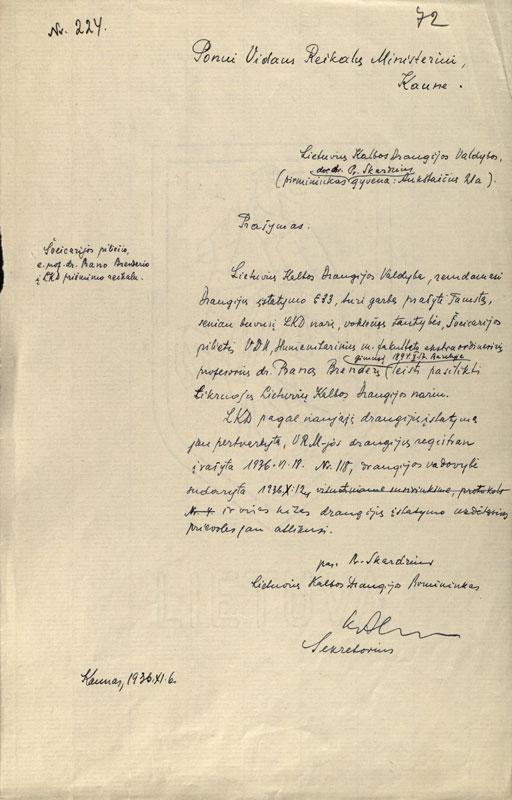 Nr. 224.
72
Ponui Vidaus Reikalų Ministeriui,
Kaune.
Lietuvių Kalbos Draugijos Valdybos,
doc. dr. Pr. Skardžius
(pirmininkas gyvena: Aukštaičių 21a).
Prašymas.
Šveicarijos piliečio,
e. prof. dr. Prano Brenderio
į LKD priėmimo reikalu.
Lietuvių Kalbos Draugijos Valdyba, remdamasi
Draugijų įstatymo § 33, turi garbę prašyti Tamstą,
seniau buvusį LKD narį, vokiečių tautybės, Šveicarijos
pilietį, VDU, Humanitarinių m. fakulteto ekstraordinarinį
gimusį 1894
profesorių dr. Praną Brenderį leisti pasilikti
tikruoju Lietuvių Kalbos Draugijos nariu.
LKD pagal naująjį draugijų įstatymą
jau pertvarkyta, VRM-jos draugijų registran
įrašyta 1936.VI.18. Nr. 118, draugijos vadovybė
sudaryta 1936.X.12, visuotiniame susirinkime, protokolo
Nr. 4 ir visas kitas draugijų įstatymo
prievoles jau atlikusi.
pas. Pr. Skardžius
Lietuvių Kalbos Draugijos Pirmininkas
Sekretorius
Kaunas, 1936.XI.6.